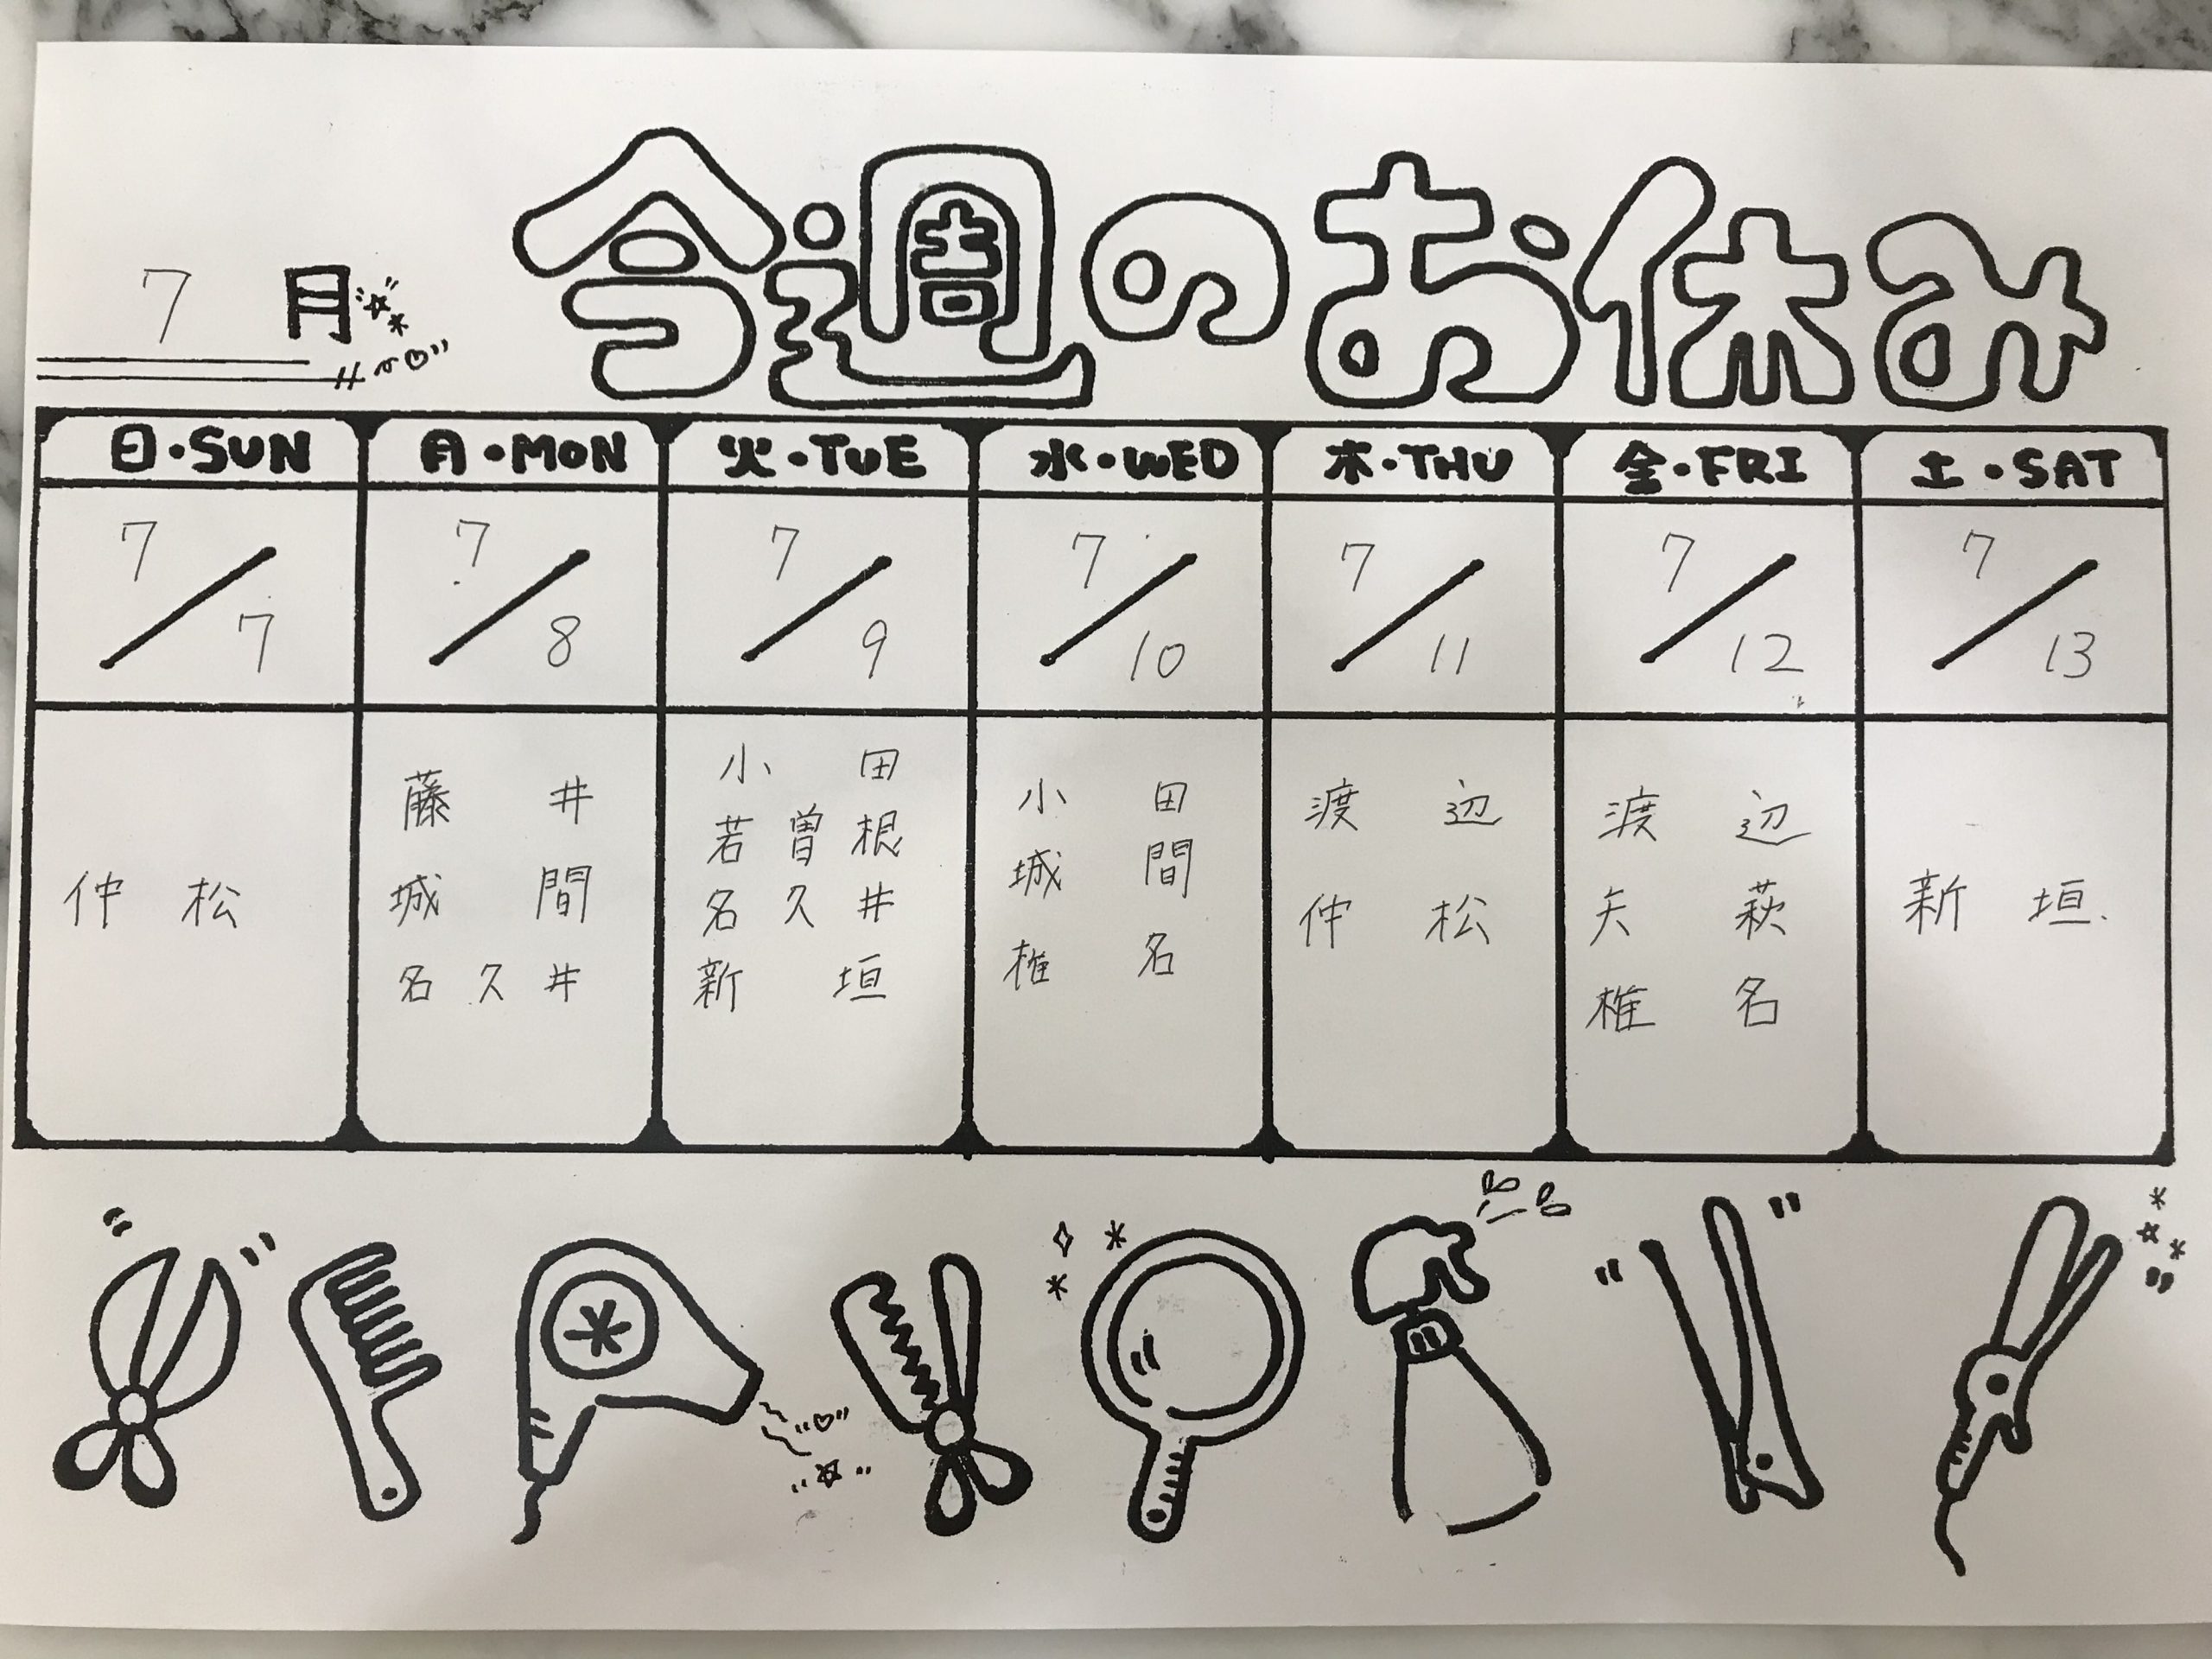 7月
今週のお休み
日・SUN 月・MON 火・TUE 水・WED 木・THU 金・FRI 土・SAT
7/7 7/8 7/9 7/10 7/11 7/12 7/13
仲松
藤井
城間
名久井
小田
若曽根
名久井
新垣
小田
城間
椎名
渡辺
仲松
渡辺
矢萩
椎名
新垣.